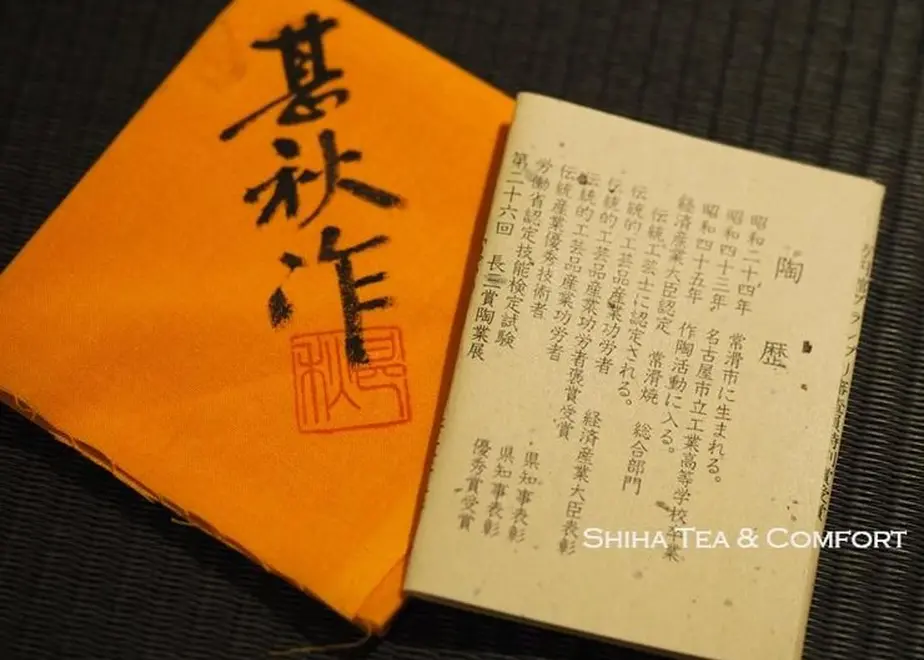 甚秋作
陶歴
昭和二十四年 常滑市に生まれる。
昭和四十三年 名古屋市立工業高等学校卒業
昭和四十五年 作陶活動に入る。
経済産業大臣認定 常滑焼 総合部門
伝統工芸士に認定される。
伝統的工芸品産業功労者 経済産業大臣表彰
伝統的工芸品産業功労者褒賞受賞
伝統産業優秀技術者 県知事表彰
労働省認定技能検定試験 県知事表彰
第二十六回 「長三賞陶業展 優秀賞受賞
SHIHA TEA & COMFORT